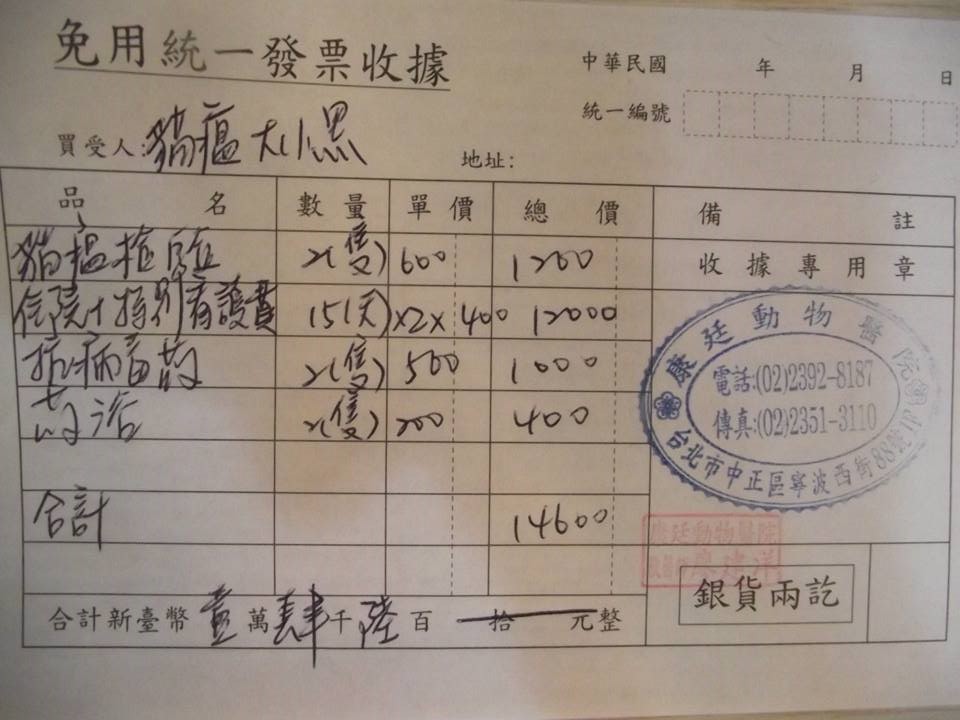 免用統一發票收據
中華民國 年 月 日
統一編號
買受人:貓瘟大小黑 地址:
品名 數量 單價 總價 備註
貓瘟檢 2(隻) 600 1200 收據專用章
住院+特別看護費 15(天)×2× 400 12000
抗病毒葯 2(隻) 500 1000
葯浴 2(隻) 200 400
合計 14600
合計新臺幣壹萬肆千陸百 拾 元整
康廷動物醫院
電話:(02)2392-8187
傳真:(02)2351-3110
台北市中正區寧波西街88號
康廷動物醫院
廖建洋
銀貨兩訖